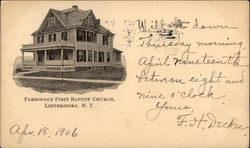 Will be down
Thursday morning
April nineteenth
between eight and
nine o'clock.
Yours,
F. H. Decker
PARSONAGE FIRST BAPTIST CHURCH,
LESTERSHIRE, N. Y.
Apr. 18, 1906